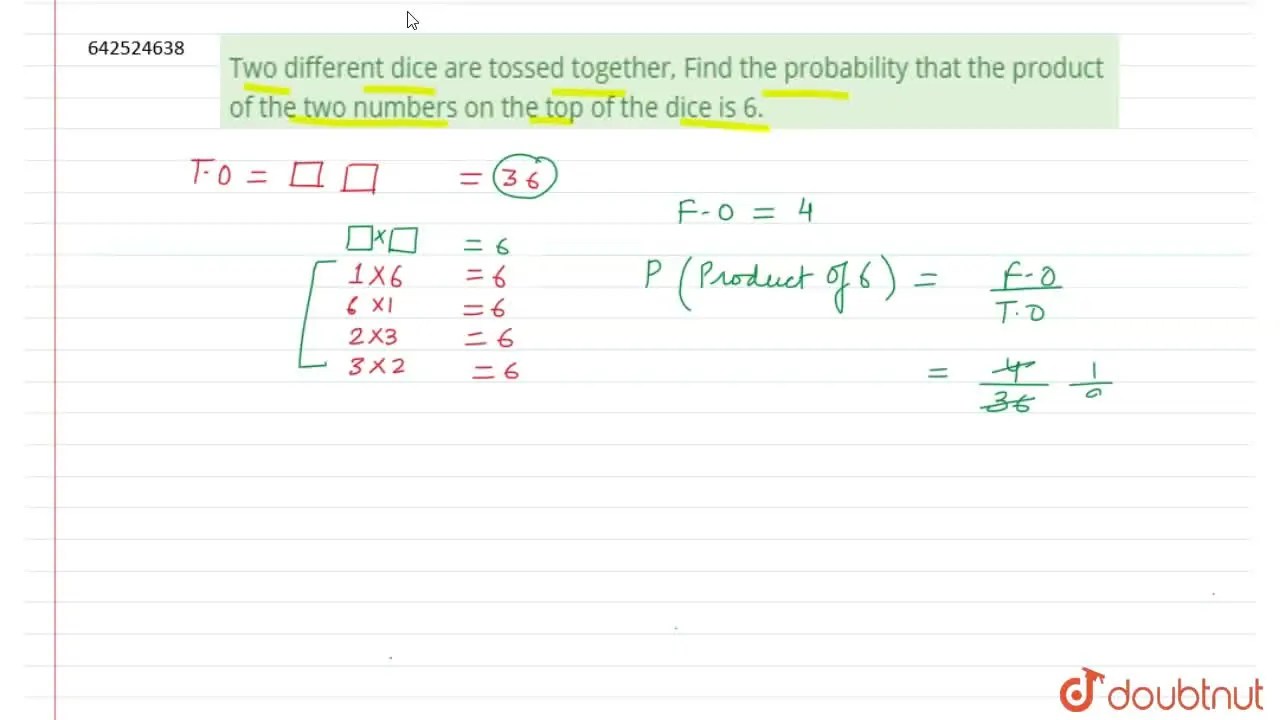 642524638
Two different dice are tossed together, Find the probability that the product
of the two numbers on the top of the dice is 6.
T.O = □ □ = 36
F-O = 4
□ × □ = 6
1 × 6 = 6
6 × 1 = 6
2 × 3 = 6
3 × 2 = 6
P (Product of 6) = F-O / T.O
= 4 / 36 1 / 9
doubtnut